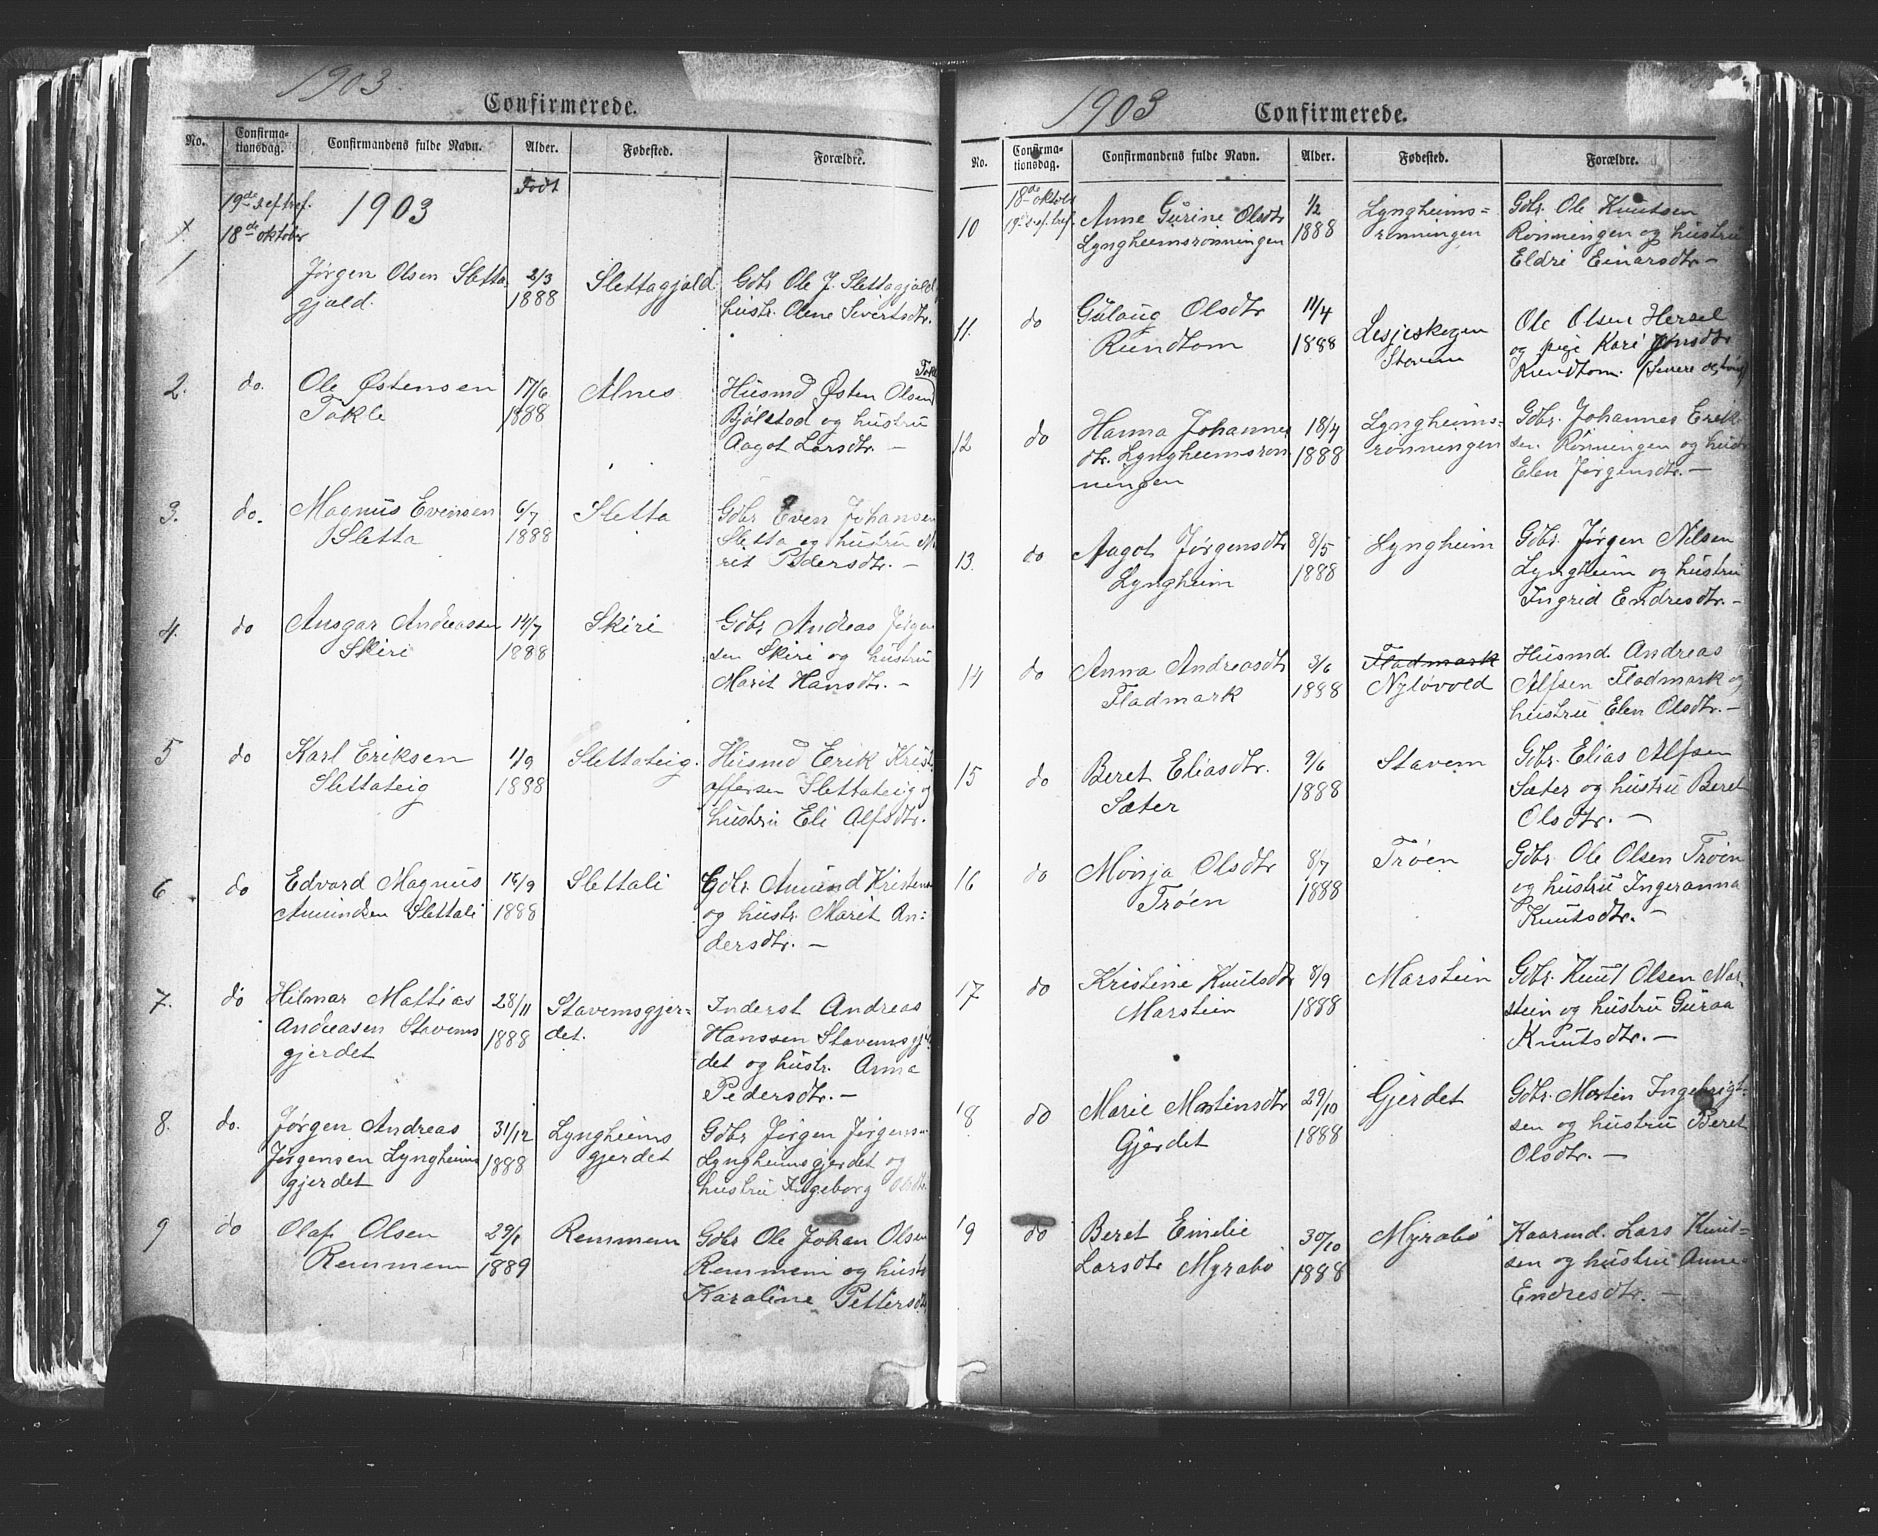 1903.
Confirmerede.
No.
Confirma-
tionsdag.
Confirmandens fulde Navn.
Alder.
Fødested.
Forældre.
Født
19de s. ef. tref.
18de oktober
1903
1
Jørgen Olsen Sletta
gjald.
2/3
1888
Slettagjald
Gdbr. Ole J. Slettagjald
hustr. Olene Sivertsdtr.
2.
do.
Ole Østensen
Takle
17/6
1888
Alnes
Husmd Østen Olsen
Bjølstad og hustru
Aagot Larsdtr. —
3.
do.
Magnus Evensen
Sletta
6/7
1888
Sletta
Gdbr Even Johansen
Sletta og hustru Ma
rit Pedersdtr. —
4.
do
Ansgar Andreassen
Skiri
14/7
1888
Skiri
Gdbr Andreas Jørgen
sen Skiri og hustru
Marit Hansdtr. —
5
do
Karl Eriksen
Slettateig
1/9
1888
Slettateig.
Husmd Erik Krist
offersen Slettateig og
hustru Eli Alfsdtr.
6
do
Edvard Magnus
Amundsen Slettali
16/9
1888
Slettali
Gdbr. Amund Kristens
og hustr. Marit An-
dersdtr. —
7.
do
Hilmar Mattias
Andreasen Stavems
gjerdet
28/11
1888
Stavemsgjer-
det.
Inderst Andreas
Hanssen Stavemsgjer
det og hustr. Anna
Pedersdtr. —
8.
do.
Jørgen Andreas
Jørgensen Lyngheims
gjerdet
31/12
1888
Lyngheims
gjerdet
Gdbr Jørgen Jørgens
Lyngheimsgjerdet og
hustru Ingeborg Olsdtr
9
do
Olaf Olsen
Remmem
29/1
1889
Remmem
Gdbr Ole Johan Olsen
Remmem og hustr
Karoline Pettersdtr
1903
Confirmerede.
No.
Confirma-
tionsdag.
Confirmandens fulde Navn.
Alder.
Fødested.
Forældre.
10
18de oktober
19de s. ef. tref.
Anne Gurine Olsdtr
Lyngheimsrønningen
1/2
1888
Lyngheims-
rønningen
Gdbr. Ole Knutsen
Rønningen og hustru
Eldri Einarsdtr. —
11.
do
Gulaug Olsdtr
Rundtom
11/4
1888
Lesjeskogen
Stavem
Ole Olsen Hersel
og pige Kari Jonsdtr
Rundtom.
12
do
Hanna Johannes
dtr. Lyngheimsrøn
ningen
18/4
1888
Lyngheims-
rønningen
Gdbr. Johannes Erik
sen Rønningen og hustr
Elen Jørgensdtr. —
13.
do
Aagot Jørgensdtr
Lyngheim
8/5
1888
Lyngheim
Gdbr. Jørgen Nilsen
Lyngheim og hustru
Ingrid Endresdtr. —
14
do
Anna Andreasdtr
Fladmark
3/6
1888
Fladmark
Nyløvold
Husmd Andreas
Alfsen Fladmark og
hustru Elen Olsdtr. —
15
do
Beret Eliasdtr.
Sæter
9/6
1888
Stavem
Gdbr. Elias Alfsen
Sæter og hustru Beret
Olsdtr. —
16
do
Monja Olsdtr
Trøen
8/7
1888
Trøen
Gdbr. Ole Olsen Trøen
og hustru Ingeranna
Knutsdtr. —
17
do
Kristine Knutsdtr
Marstein
8/9
1888
Marstein
Gdbr. Knut Olsen Mar-
stein og hustru Guraa
Knutsdtr. —
18
do
Marie Martinsdtr
Gjerdet
29/10
1888
Gjerdet
Gdbr. Martin Ingebrigt-
sen og hustru Beret
Olsdtr. —
19
do
Beret Emelie
Larsdtr Myrabø
30/10
1888
Myrabø
Kaarmd. Lars Knut-
sen og hustru Anne
Endresdtr. —